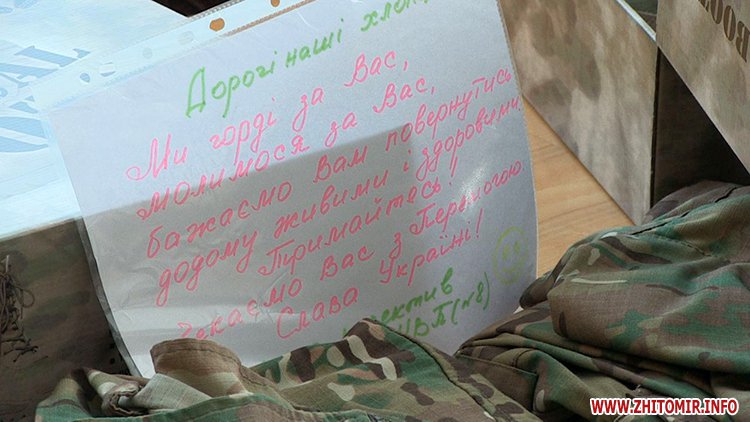 Дорогі наші хлопц
Ми горді за Вас,
молимося за Вас,
бажаємо Вам повернутись
додому живими і здоровими
Тримайтесь!
Чекаємо Вас з Перемогою.
Слава Україні!
лектив
НВП (№8)
WWW.ZHITOMIR.INFO